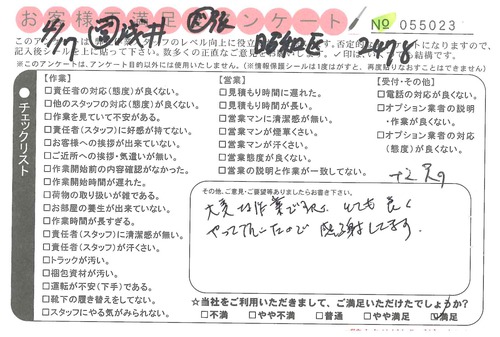 お客様不満足アンケート
№ 055023
5/17 浅井 昭和区 2478
※このアンケートは、アンケート目的以外には使用いたしません。(※情報保護シールは1度はがすと、再度貼りなおすことはできません)
チェックリスト
【作業】
□責任者の対応(態度)が良くない。
□他のスタッフの対応(態度)が良くない。
□作業を見ていて不安がある。
□責任者(スタッフ)に好感が持てない。
□お客様への挨拶が出来ていない。
□ご近所への挨拶・気遣いが無い。
□作業開始前の内容確認がなかった。
□作業開始時間が遅れた。
□荷物の取り扱いが雑である。
□お部屋の養生が出来ていない。
□作業時間が長すぎる。
□責任者(スタッフ)に清潔感が無い。
□責任者(スタッフ)が汗くさい。
□トラックが汚い。
□梱包資材が汚い。
□運転が不安(下手)である。
□靴下の履き替えをしてない。
□スタッフにやる気がみられない。
【営業】
□見積もり時間に遅れた。
□見積もり時間が長い。
□営業マンに清潔感が無い。
□営業マンが煙草くさい。
□営業マンが汗くさい。
□営業態度が良くない。
□営業の説明と作業が一致してない。
【受付・その他】
□電話の対応が良くない。
□オプション業者の説明
・作業が良くない。
□オプション業者の対応
(態度)が良くない。
その他、ご意見・ご要望等ありましたらお書き下さい。
大変な作業ですが、とても良く
やってていたので感謝してます。
☆当社をご利用いただきまして、ご満足いただけたでしょうか?
□不満 □やや不満 □普通 □やや満足 □満足